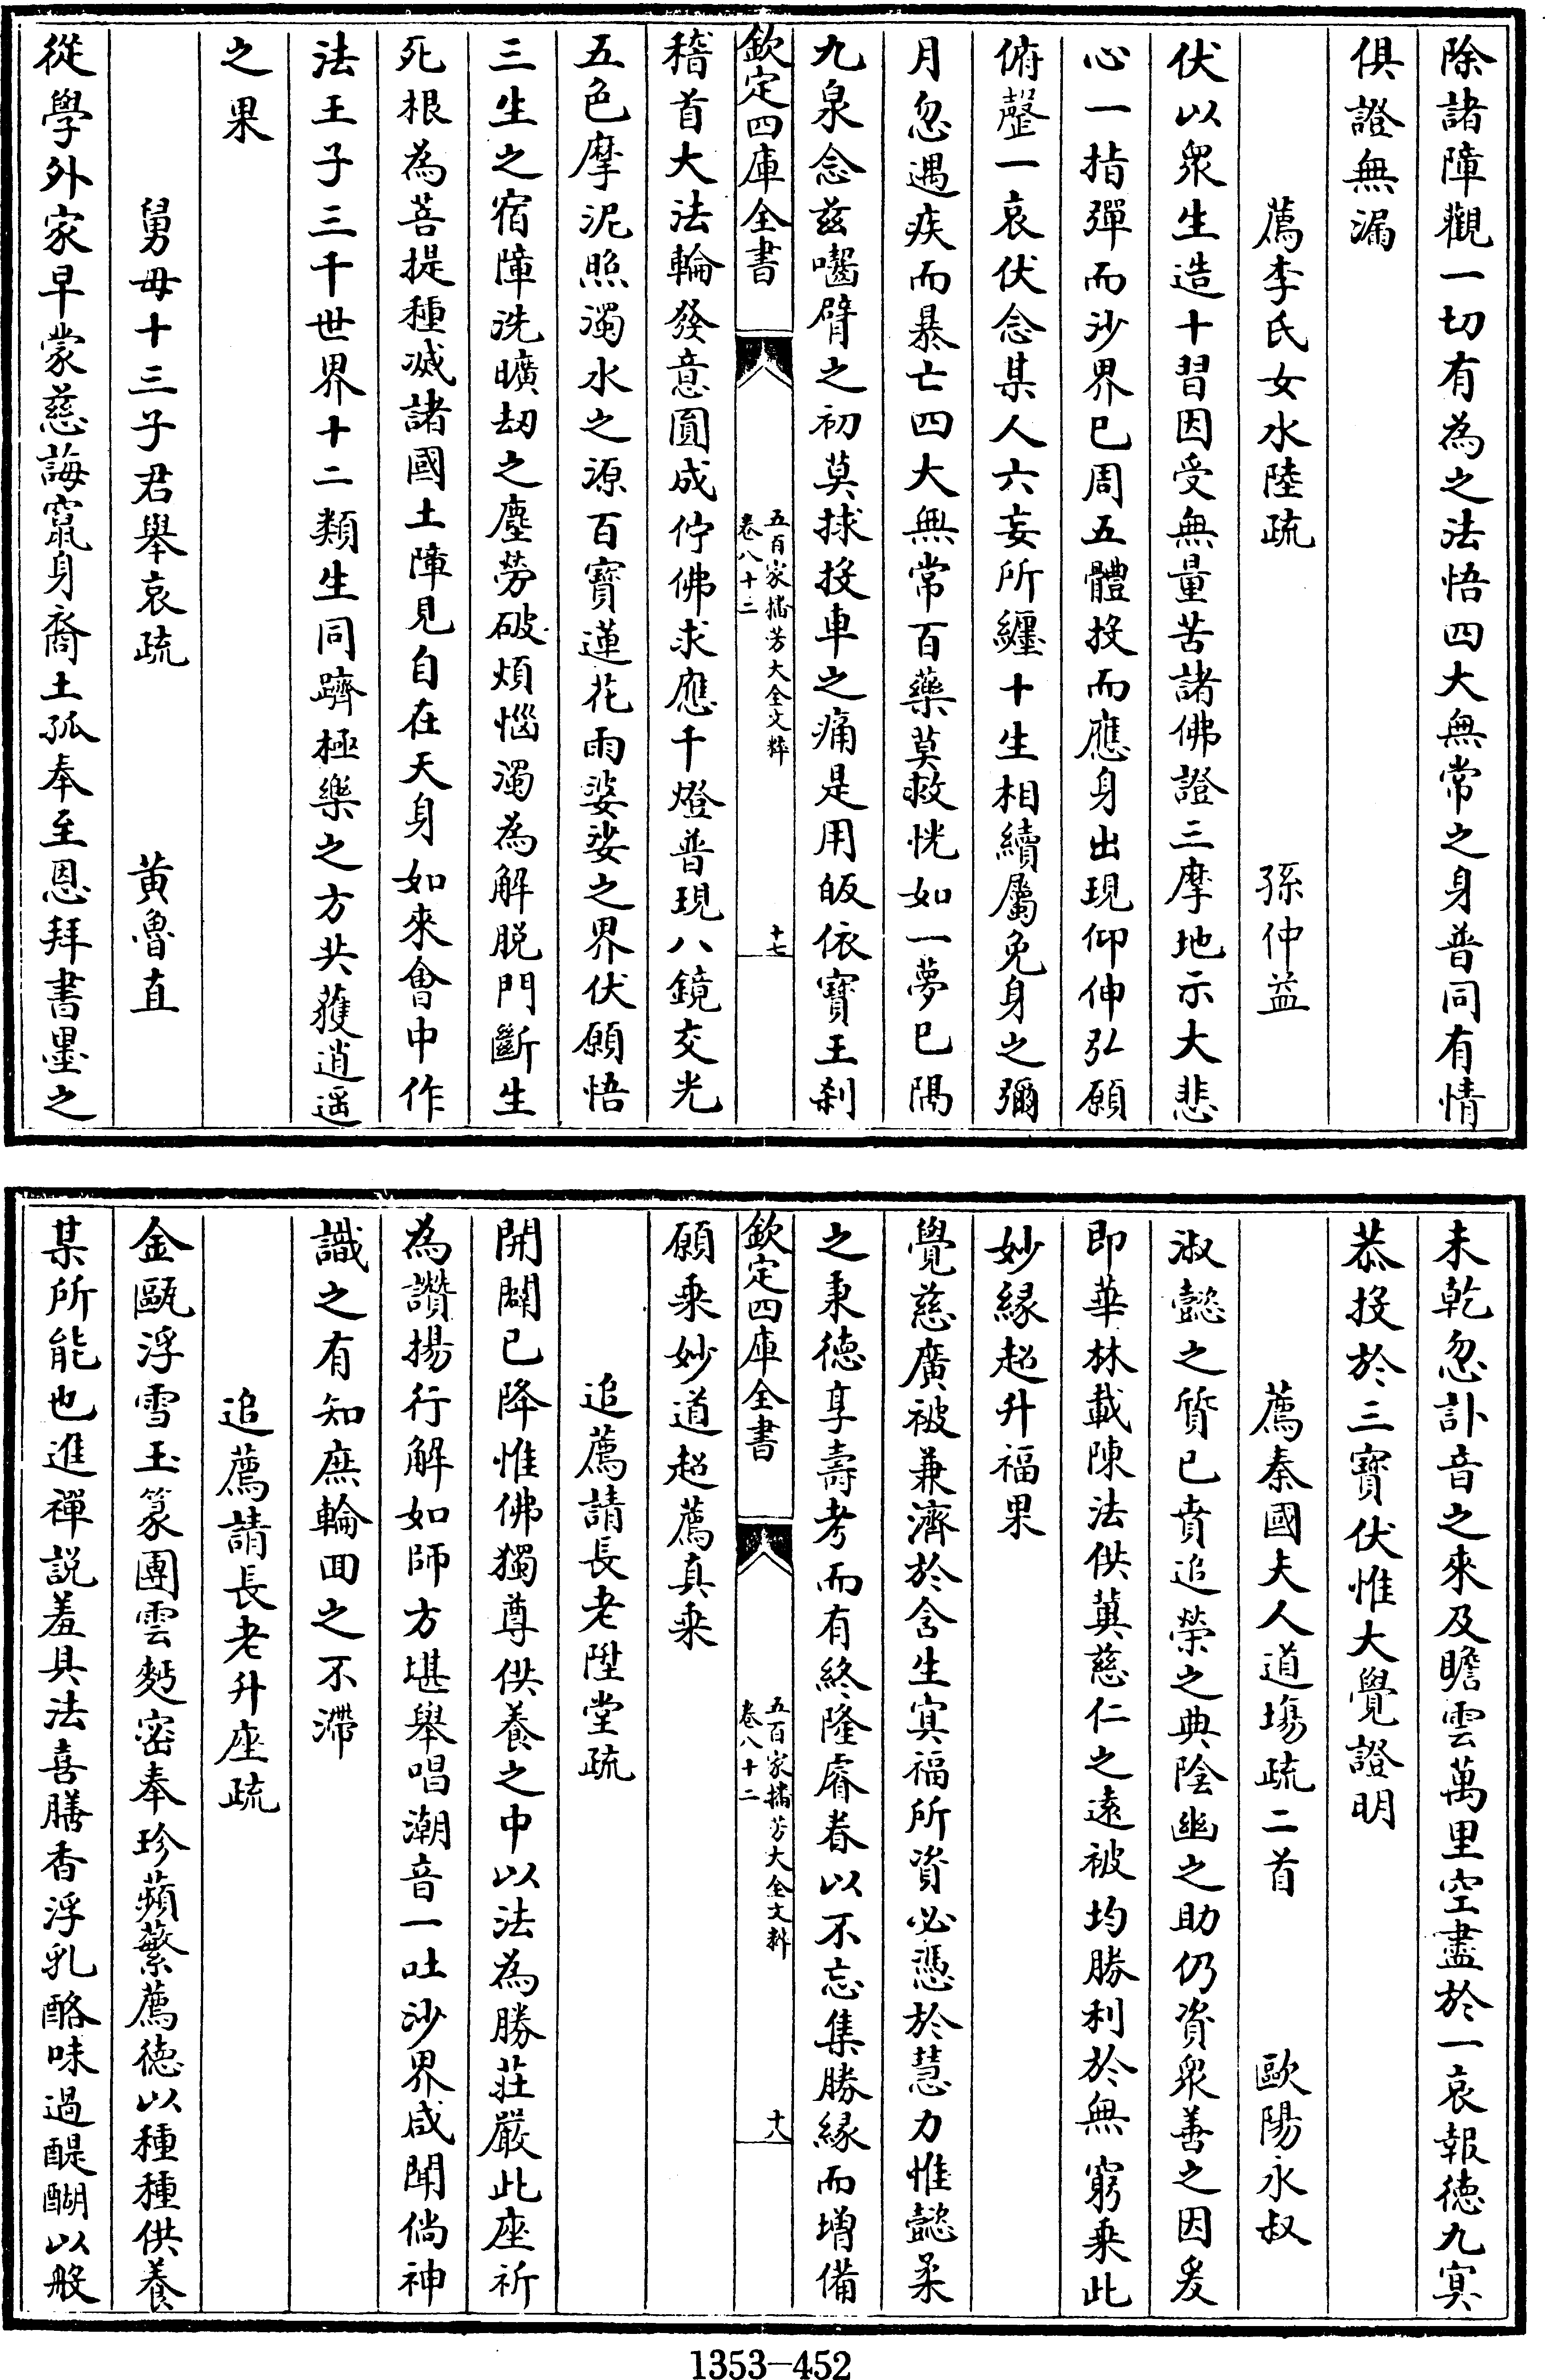 除諸障觀一切有為之法悟四大無常之身普同有情
俱證無漏
薦李氏女水陸疏 孫仲益
伏以衆生造十習因受無量苦諸佛證三摩地示大悲
心一指彈而沙界已周五體投而應身出現仰伸弘願
俯罄一哀伏念某人六妄所纏十生相續屬免身之彌
月忽遇疾而暴亡四大無常百藥莫救恍如一夢已隔
九泉念兹囓臂之初莫捄投車之痛是用皈依寶王刹
欽定四庫全書
五百家播芳大全文粹
卷八十二
十七
稽首大法輪發意圓成佇佛求應千燈普現八鏡交光
五色摩泥照濁水之源百寶蓮花雨娑娑之界伏願悟
三生之宿障洗曠劫之塵勞破煩惱濁為解脱門斷生
死根為菩提種滅諸國土障見自在天身如來會中作
法王子三千世界十二類生同躋極樂之方共獲逍遥
之果
舅母十三子君舉哀疏 黄魯直
從學外家早蒙慈誨竄身裔土孤奉至恩拜書墨之
未乾忽訃音之來及瞻雲萬里空盡於一哀報徳九冥
恭投於三寶伏惟大覺證明
薦秦國夫人道塲疏二首 歐陽永叔
淑懿之質已賁追榮之典陰幽之助仍資衆善之因爰
即華林載陳法供冀慈仁之逺被均勝利於無窮乗此
妙縁超升福果
覺慈廣被兼濟於含生冥福所資必憑於慧力惟懿柔
之秉徳享壽考而有終隆睿眷以不忘集勝縁而増備
欽定四庫全書
五百家播芳大全文粹
卷八十二
十八
願乗妙道超薦真乗
追薦請長老陞堂疏
開闢已降惟佛獨尊供養之中以法為勝莊嚴此座祈
為讚揚行解如師方堪舉唱潮音一吐沙界咸聞倘神
識之有知庶輪回之不滯
追薦請長老升座疏
金甌浮雪玉篆團雲麪密奉珍蘋蘩薦徳以種種供養
某所能也進禪説羞具法喜膳香浮乳酪味過醍醐以般
1353-452